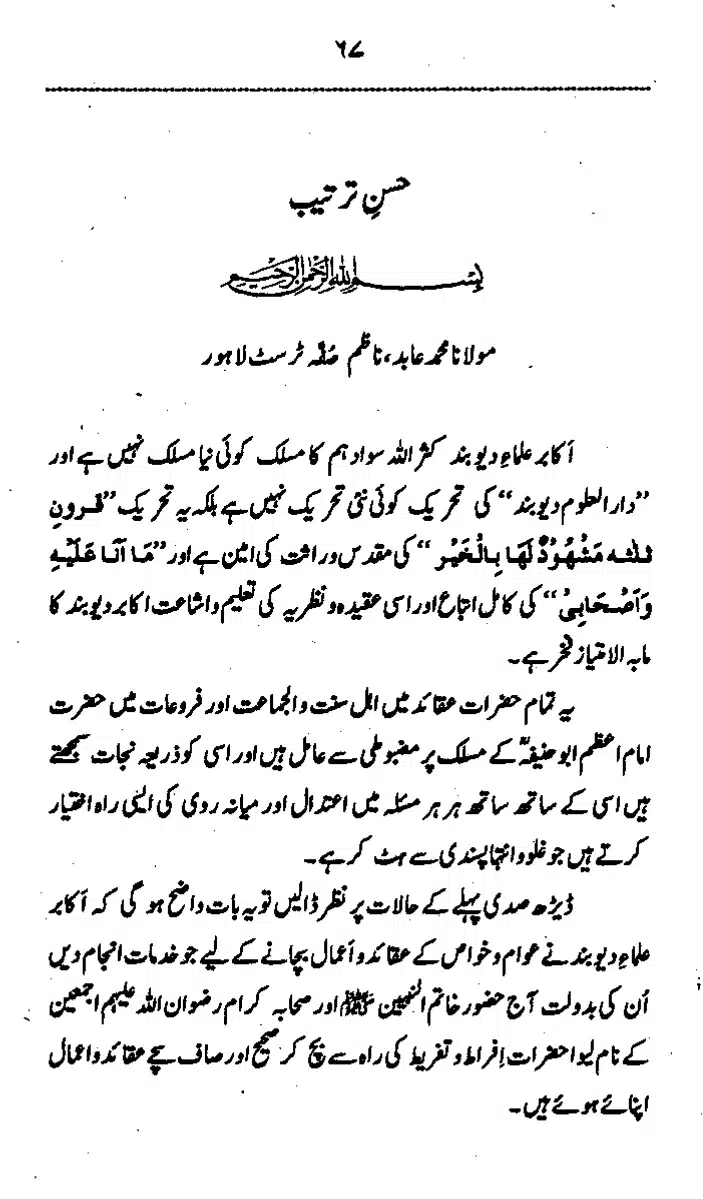 ۶۷
حسنِ ترتیب
بسم اللہ الرحمن الرحیم
مولانا محمد عابد، ناظم صُفّہ ٹرسٹ لاہور
اَکابر علماءِ دیوبند کثر اللہ سوادہم کا مسلک کوئی نیا مسلک نہیں ہے اور
”دارالعلوم دیوبند“ کی تحریک کوئی نئی تحریک نہیں ہے بلکہ یہ تحریک ”قرونِ
ثلثہ مَشْهُوْدٌ لَهَا بِالْخَيْرِ“ کی مقدس وراثت کی امین ہے اور ”مَا اَنَا عَلَيْهِ
وَاَصْحَابِيْ“ کی کامل اتباع اور اسی عقیدہ و نظریہ کی تعلیم و اشاعت اکابر دیوبند کا
مابہ الامتیاز فخر ہے۔
یہ تمام حضرات عقائد میں اہل سنت والجماعت اور فروعات میں حضرت
امام اعظم ابو حنیفہؒ کے مسلک پر مضبوطی سے عامل ہیں اور اسی کو ذریعہ نجات سمجھتے
ہیں اسی کے ساتھ ساتھ ہر ہر مسئلہ میں اعتدال اور میانہ روی کی ایسی راہ اختیار
کرتے ہیں جو غلو و انتہا پسندی سے ہٹ کر ہے۔
ڈیڑھ صدی پہلے کے حالات پر نظر ڈالیں تو یہ بات واضح ہو گی کہ اَکابر
علماءِ دیوبند نے عوام و خواص کے عقائد و اَعمال بچانے کے لیے جو خدمات انجام دیں
اُن کی بدولت آج حضور خاتم النبیین ﷺ اور صحابہ کرام رضوان اللہ علیہم اجمعین
کے نام لیوا حضرات اِفراط و تفریط کی راہ سے بچ کر صحیح اور صاف سچے عقائد و اعمال
اپنائے ہوئے ہیں۔